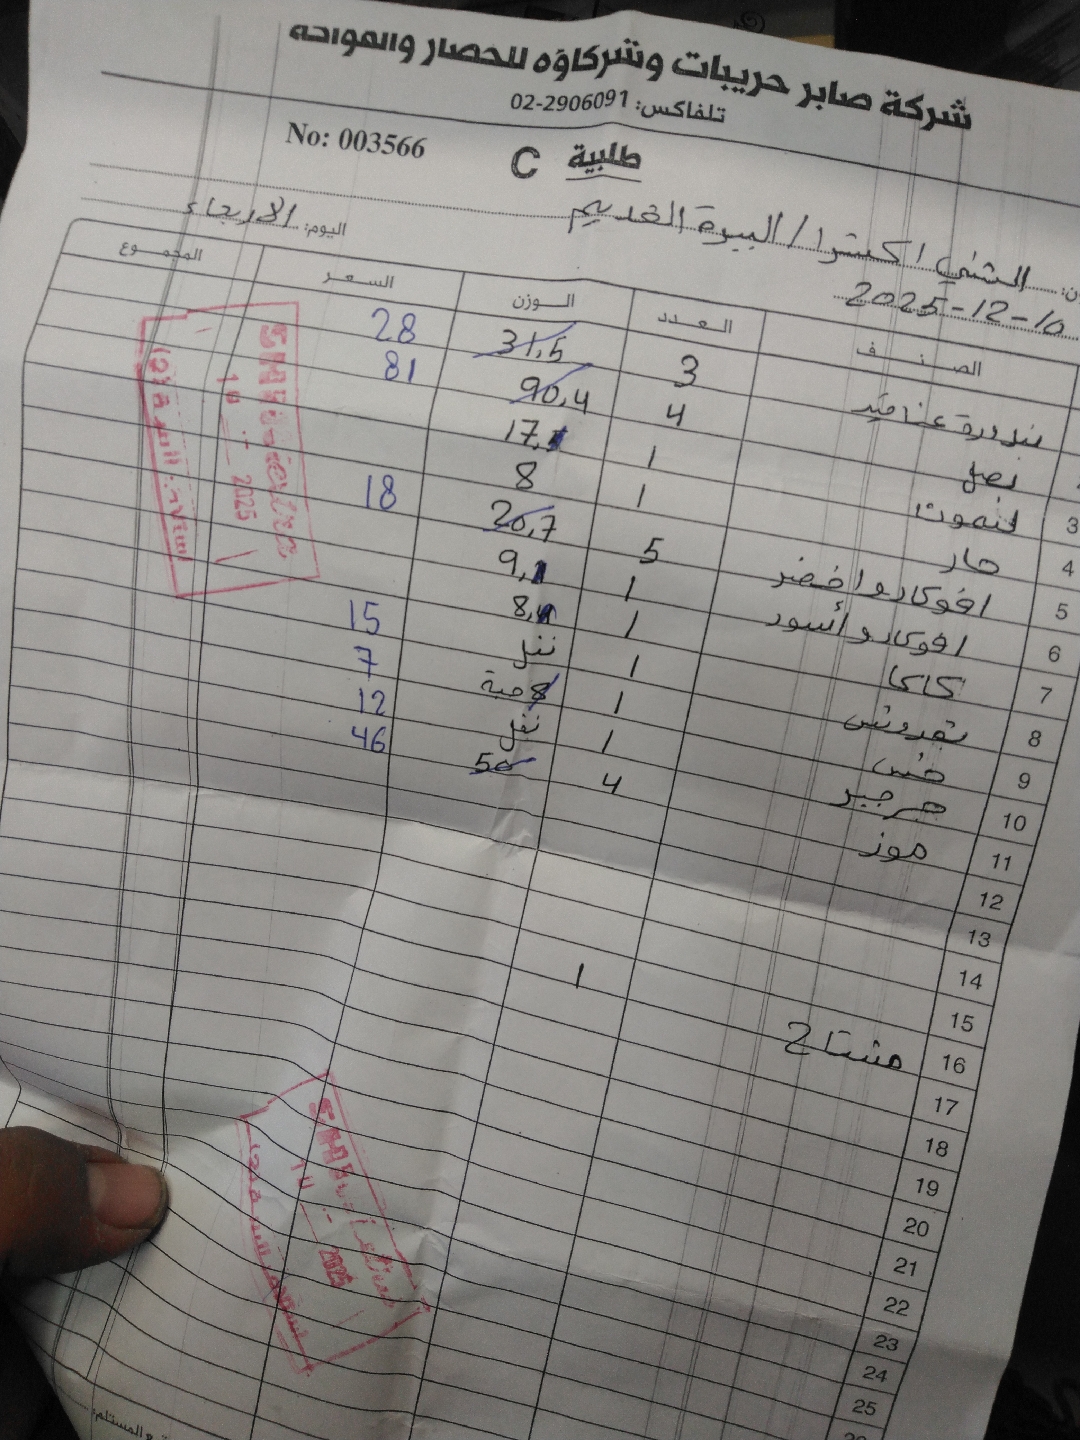 شركة صابر حريبات وشركاؤه للخضار والفواكه
تلفاكس: 02-2906091
No: 003566
طلبية C
الشني اكسترا / البيرة القديم
اليوم: الاربعاء
2025-12-10
الصنف العدد الوزن السعر المجموع
بندورة عناقيد 3 31,5 28
بصل 4 90,4 81
3 1 17,
4 حار 1 8
5 افوكادو اخضر 5 20,7 18
6 افوكادو أسود 1 9,
7 كاكا 1 8,
8 بقدونس 1 نقل 15
9 خس 1 8 حبة 7
10 جرجير 1 نقل 12
11 موز 4 50 46
12
13
14
15
16 مشتاح 1
17
18
19
20
21
22
23
24
25
10 2025
2025
المستلم: